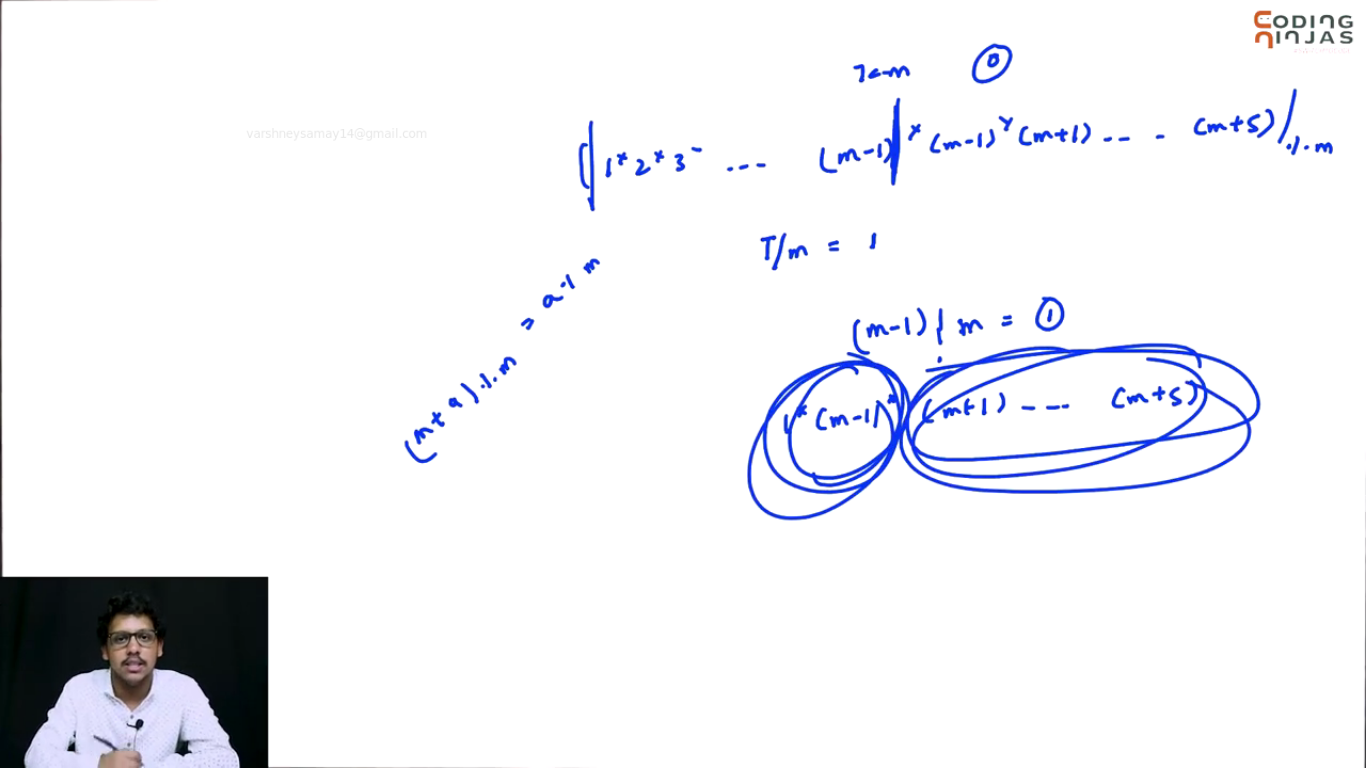 CODING
NINJAS
varshneysamay14@gmail.com
(1*2*3- --- (m-1) * (m-1) * (m+1) -- - (m+5) ) % m
T/m = 1
(m+a) % m = a % m
(m-1) % m = 1
1*(m-1)* (m+1) --- (m+5)